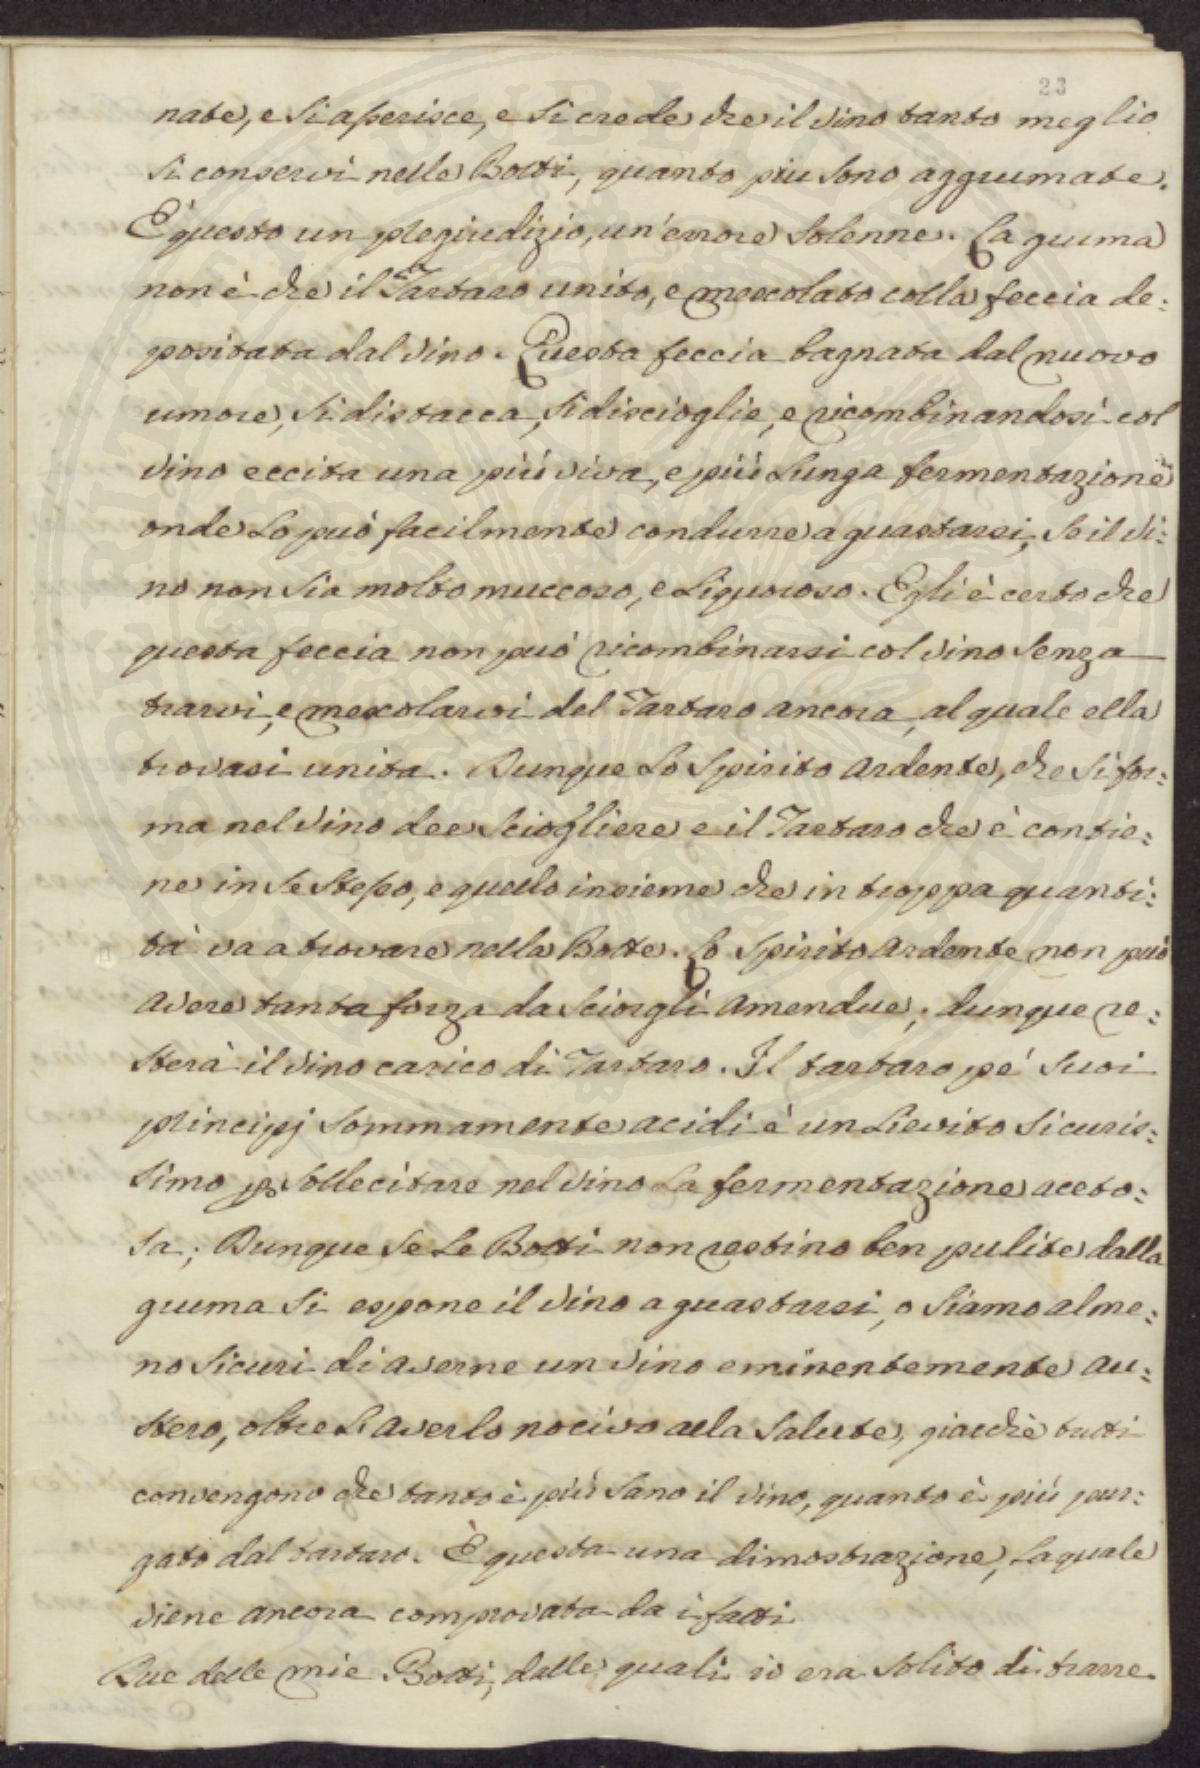 23
nate, e si asserisce, e si crede che il vino tanto meglio
si conservi nelle Botti, quanto piu sono aggrumate.
È questo un pregiudizio, un'errore solenne. La gruma
non è che il Tartaro unito, e mescolato colla feccia de:
positata dal vino. Questa feccia bagnata dal nuovo
umore, si distacca, si discioglie, e ricombinandosi col
vino eccita una più viva, e più lunga fermentazione
onde lo può facilmente condurre a guastarsi, se il vi:
no non sia molto muccoso, e liquoroso. Egli è certo che
questa feccia non può ricombinarsi col vino senza
trarvi, e mescolarvi del Tartaro ancora, al quale ella
trovasi unita. Dunque lo Spirito ardente, che si for:
ma nel vino dee sciogliere e il Tartaro che è contie:
ne in se stesso, e quello insieme che in troppa quanti:
tà va a trovare nella Botte. Lo Spirito ardente non può
avere tanta forza da sciorgli amendue; dunque re:
sterà il vino carico di Tartaro. Il tartaro pe' suoi
principj sommamente acidi è un lievito sicuris:
simo p sollecitare nel vino la fermentazione aceto:
sa; Dunque se le Botti non restino ben pulite dalla
gruma si espone il vino a guastarsi, o siamo alme:
no sicuri di averne un vino eminentemente au:
stero, oltre l'averlo nocivo alla salute, giacchè tutti
convengono che tanto è più sano il vino, quanto è più pur:
gato dal tartaro. È questa una dimostrazione, la quale
viene ancora comprovata da i fatti
Due delle mie Botti, dalle quali io era solito di trarre